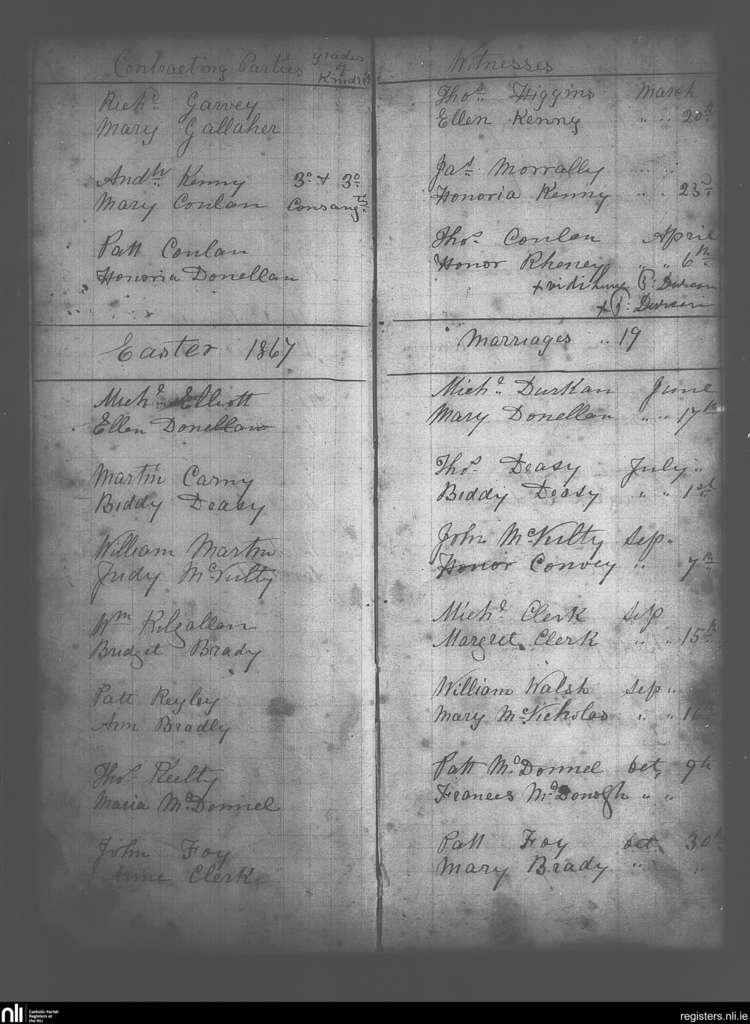 Contracting Parties grades of Kindred Witnesses
Richd. Garvey Thos. Higgins March
Mary Gallaher Ellen Kenny " " 20th
Andw. Kenny 3o + 3o Jas. Morrally
Mary Conlan Consangts. Honoria Kenny " " 23d
Patt Conlan Thos. Conlan April
Honoria Donellan Honor Rheney " " 6th
+ P: Durcan
Easter 1867 Marriages " 19
Michl. Elliott Michl. Durkan June
Ellen Donellan Mary Donellan " " 17th
Martin Carny Thos. Deasy July "
Biddy Deasy Biddy Deasy " " 1st
William Martin John McNulty Sep "
Judy McNulty Honor Convey " 7th
Wm Kilgallan Michl. Clerk Sep
Bridget Brady Margret Clerk " " 15th
Patt Reyley William Walsh Sep "
Ann Bradly Mary McNicholas " "
Thos. Keelty Patt McDonnel Oct. 9th
Maria McDonnel Frances McDonogh " "
John Foy Patt Foy Oct. 30th
Anne Clerk Mary Brady " "
nli Catholic Parish Registers at the NLI registers.nli.ie